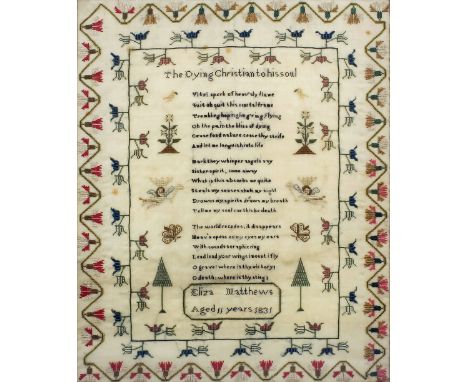 The Dying Christian to his soul
Vital spark of heav'nly flame
Quit oh quit this mortal frame
Trembling hoping ling'ring flying
Oh the pain the bliss of dying
Cease fond nature cease thy strife
And let me languish into life
Hark they whisper angels say
Sister spirit come away
What is this absorbs me quite
Steals my senses shuts my sight
Drowns my spirits draws my breath
Tell me my soul can this be death
The world recedes it disappears
Heav'n opens on my eyes my ears
With sounds seraphic ring
Lend lend your wings I mount I fly
O grave where is thy victory
O death where is thy sting
Eliza Matthews
Aged 11 years 1831